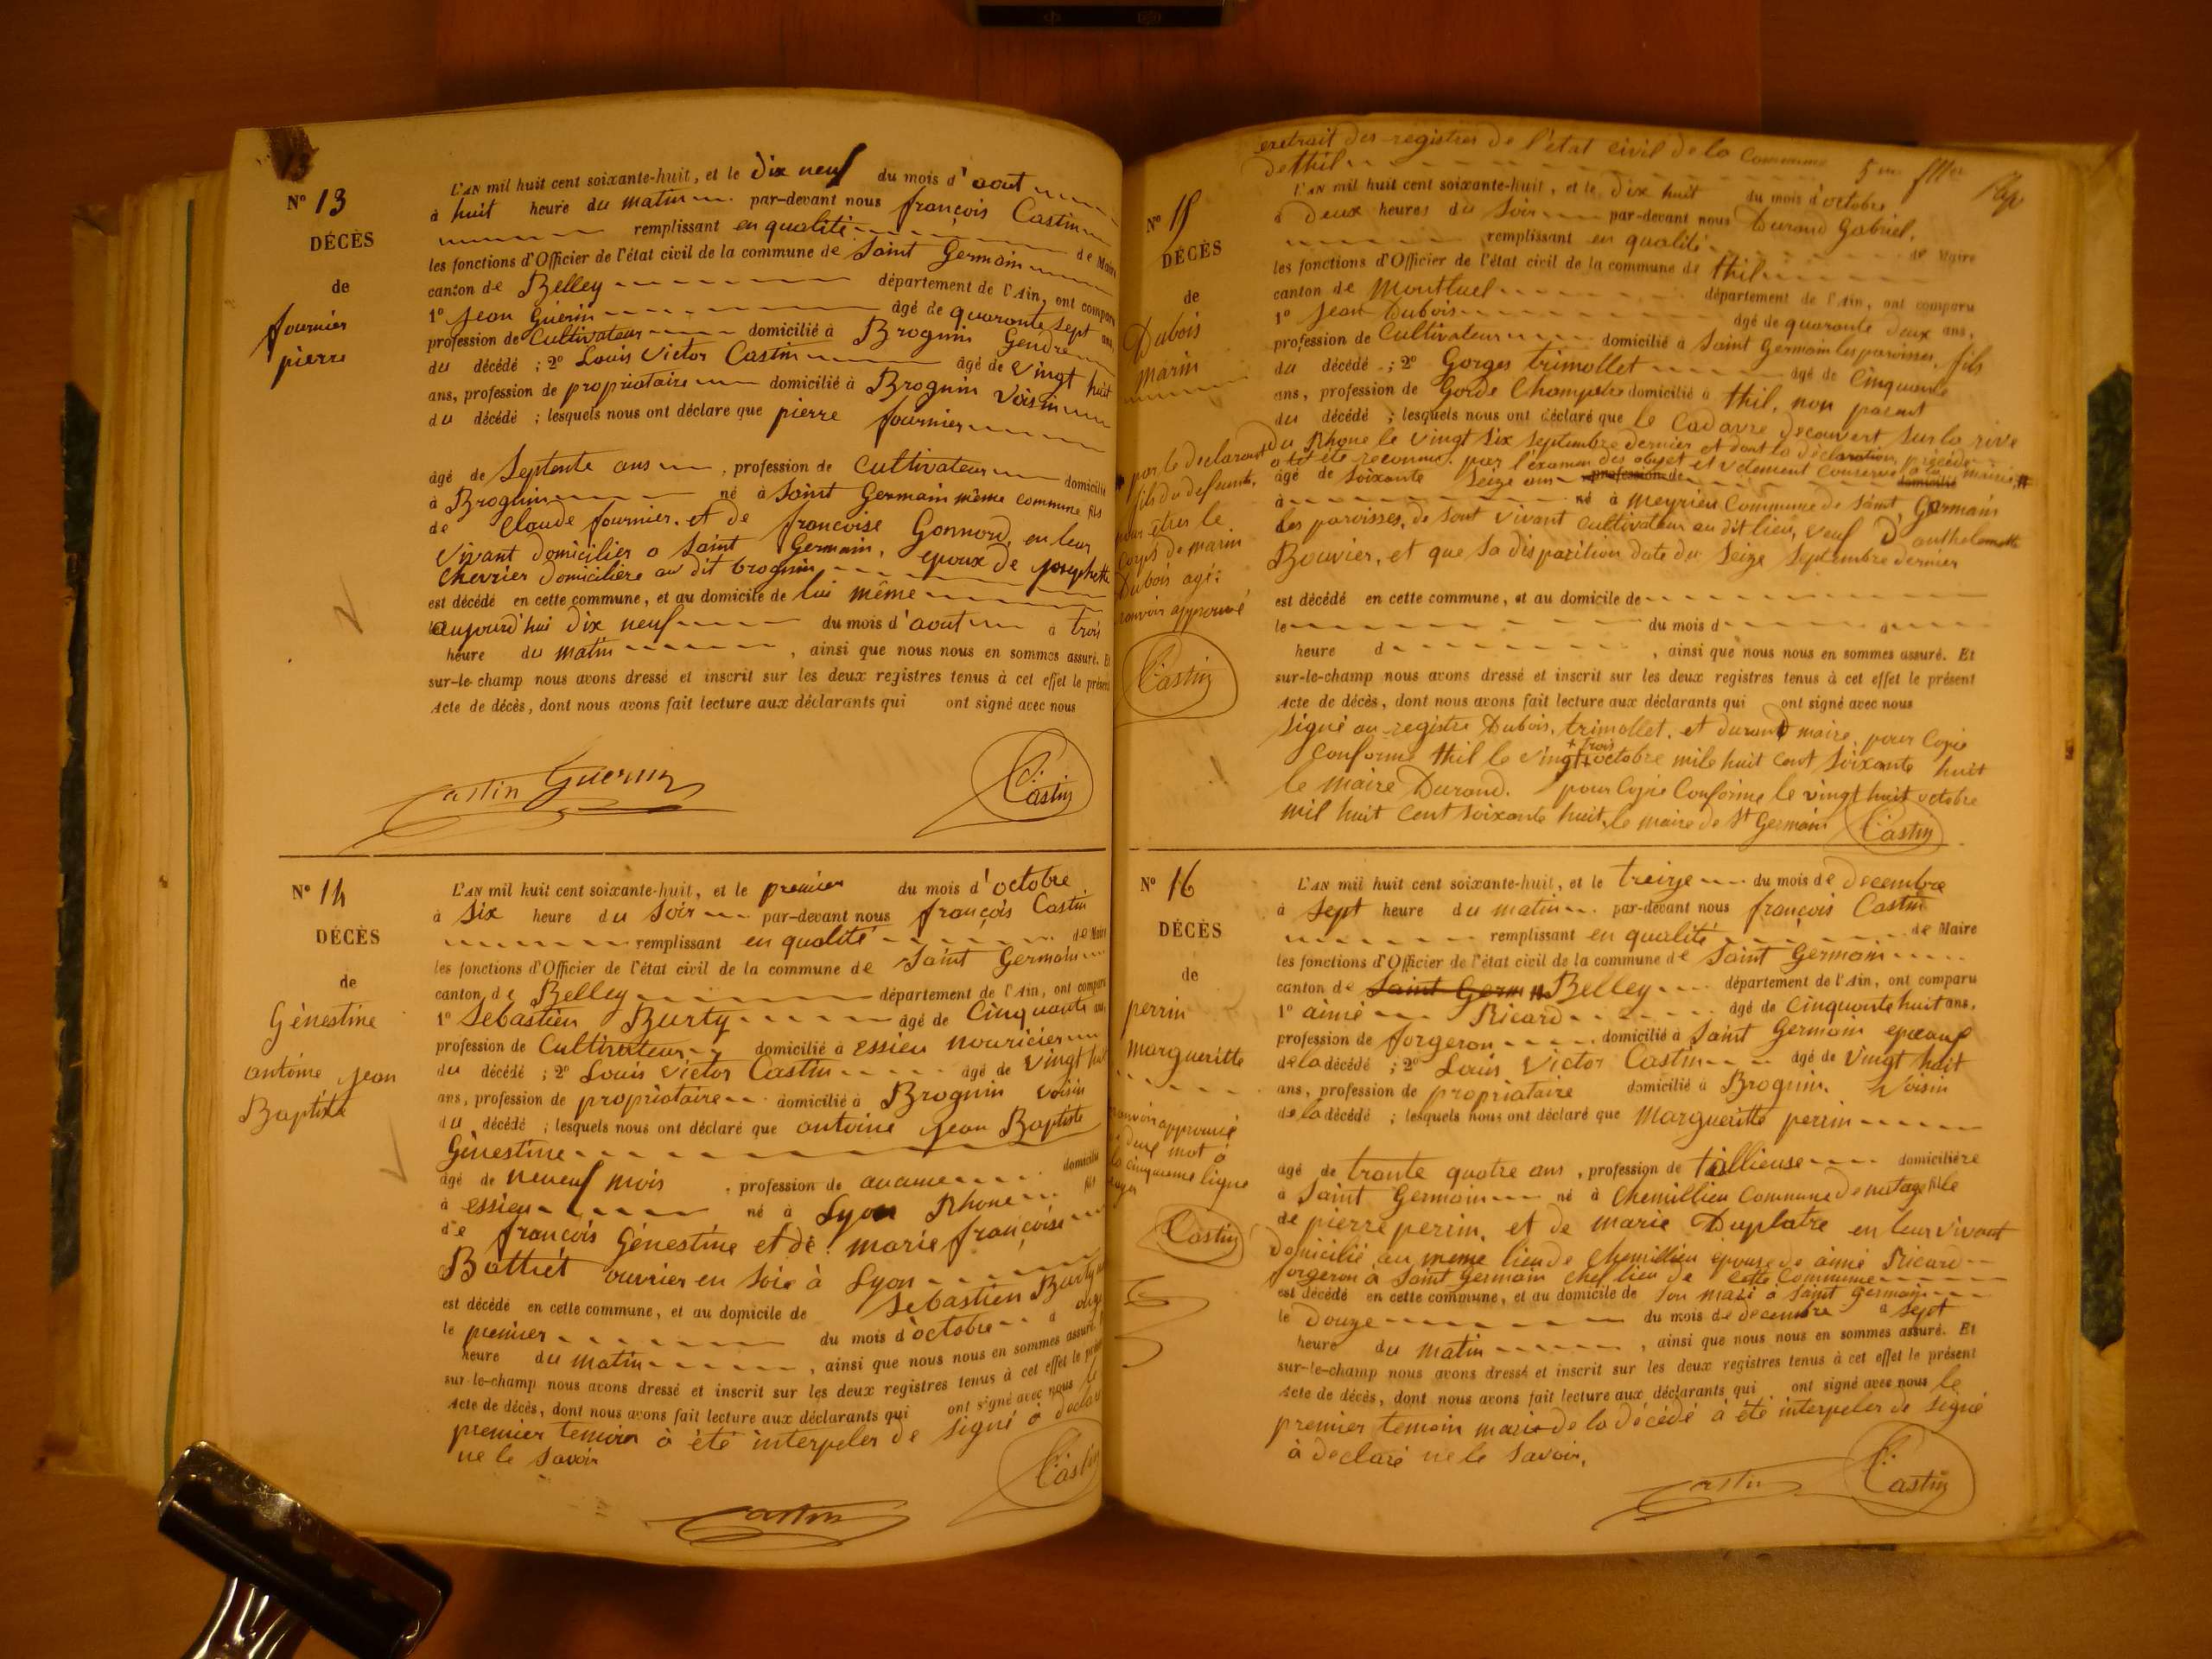 13
N° 13
DÉCÈS
de
fournier
pierre
L'AN mil huit cent soixante-huit, et le dix neuf du mois d'aout
à huit heure du matin par-devant nous françois Castin
remplissant en qualité de Maire
les fonctions d'Officier de l'état civil de la commune de Saint Germain
canton de Belley département de l'Ain, ont comparu
1° Jean Guerin âgé de quarante sept ans,
profession de Cultivateur domicilié à Brognin Gendre
du décédé ; 2° Louis Victor Castin âgé de vingt huit
ans, profession de propriataire domicilié à Brognin Voisin
du décédé ; lesquels nous ont déclaré que pierre fournier
âgé de Septente ans , profession de cultivateur domicilié
à Brognin né à Saint Germain même commune fils
de Claude fournier. et de francoise Gonnord, en leur
Vivant domicilier a Saint Germain, epoux de josephette
Chevrier domicilière au dit brognin
est décédé en cette commune, et au domicile de lui même
le aujourd'hui dix neuf du mois d'aout à trois
heure du matin , ainsi que nous nous en sommes assuré. Et
sur-le-champ nous avons dressé et inscrit sur les deux registres tenus à cet effet le présent
Acte de décès, dont nous avons fait lecture aux déclarants qui ont signé avec nous
Castin Guerin
Castin
N° 14
DÉCÈS
de
Génestine
antoine jean
Baptiste
L'AN mil huit cent soixante-huit, et le premier du mois d'octobre
à Six heure du Soir par-devant nous françois Castin
remplissant en qualité de Maire
les fonctions d'Officier de l'état civil de la commune de Saint Germain
canton de Belley département de l'Ain, ont comparu
1° Sebastien Burty âgé de Cinquante ans,
profession de Cultivateur domicilié à essieu nouricier
du décédé ; 2° Louis Victor Castin âgé de vingt huit
ans, profession de propriotaire domicilié à Brognin voisin
du décédé ; lesquels nous ont déclaré que antoine jean Baptiste
Génestine
âgé de neuf mois , profession de aucune domicilié
à essieu né à Lyon Rhone fils
de françois Génestine et de marie françoise
Battiét ouvrier en Soie à Lyon
est décédé en cette commune, et au domicile de Sebastien Burty
le premier du mois d'octobre à onze
heure du matin , ainsi que nous nous en sommes assuré. Et
sur-le-champ nous avons dressé et inscrit sur les deux registres tenus à cet effet le présent
Acte de décès, dont nous avons fait lecture aux déclarants qui ont signé avec nous le
premier temoin à été interpeler de signé à declaré
ne le Savoir
Castin
Castin
extrait des registres de l'état civil de la Commune
de thil
N° 15
DÉCÈS
de
Dubois
Marin
L'AN mil huit cent soixante-huit, et le dix huit du mois d'octobre
à Deux heures du Soir par-devant nous Durand Gabriel.
remplissant en qualité de Maire
les fonctions d'Officier de l'état civil de la commune de thil
canton de Montluel département de l'Ain, ont comparu
1° Jean Dubois âgé de quarante deux ans,
profession de Cultivateur domicilié à Saint Germain les paroisses, fils
du décédé ; 2° Gorges trimollet âgé de Cinquante
ans, profession de Gorde Champetre domicilié à thil, non parent
du décédé ; lesquels nous ont déclaré que le Cadavre découvert Sur la rive
du Rhone le vingt six septembre dernier et dont la déclaration, précède
a été reconnu par l'examen des objet et vetement Conservé a la mairie
âgé de Soixante Seize ans profession de domicilié
à né à meyrieu Commune de Saint, Germain
les paroisses, de Sont vivant cultivateur au dit lieu, veuf D'anthelmette
Bouvier, et que Sa disparition date du Seize Septembre dernier
par le declarant
fils du defunt,
pour être le
Corps de marin
Dubois agé:
renvoir approuvé
Castin
est décédé en cette commune, et au domicile de
le du mois d à
heure d , ainsi que nous nous en sommes assuré. Et
sur-le-champ nous avons dressé et inscrit sur les deux registres tenus à cet effet le présent
Acte de décès, dont nous avons fait lecture aux déclarants qui ont signé avec nous
Signé au registre Dubois, trimollet, et durand maire, pour Copie
trois
Conforme thil le vingt octobre mile huit cent Soixante huit
le maire Durand. pour Copie Conforme le vingt huit octobre
mil huit Cent Soixante huit, le maire de St Germain Castin
N° 16
DÉCÈS
de
perrin
margueritte
L'AN mil huit cent soixante-huit, et le treize du mois de decembre
à Sept heure du matin par-devant nous françois Castin
remplissant en qualité de Maire
les fonctions d'Officier de l'état civil de la commune de Saint Germain
canton de Saint Germ Belley département de l'Ain, ont comparu
1° aimé Ricard âgé de Cinquante huit ans,
profession de forgeron domicilié à Saint Germain epoux
de la décédé ; 2° Louis Victor Castin âgé de Vingt huit
ans, profession de propriataire domicilié à Brognin. Voisin
de la décédé ; lesquels nous ont déclaré que Margueritte perrin
renvoir approuvé
d'une mot à
la cinquieme ligne
Castin
âgé de trante quatre ans , profession de tallieuse domicilière
à Saint Germain né à Chemillieu Commune de natage file
de pierre perrin, et de marie Duplatre en leur vivant
domicilié au meme lieu de Chemillieu épouse de aimé Ricard
forgeron à Saint Germain chef lieu de cette Commune
est décédé en cette commune, et au domicile de Son mari à Saint Germain
le Douze du mois de decembre à Sept
heure du matin , ainsi que nous nous en sommes assuré. Et
sur-le-champ nous avons dressé et inscrit sur les deux registres tenus à cet effet le présent
Acte de décès, dont nous avons fait lecture aux déclarants qui ont signé avec nous le
premier temoin mari de la décédé à été interpeler de Signé
à declaré ne le Savoir.
Castin
Castin